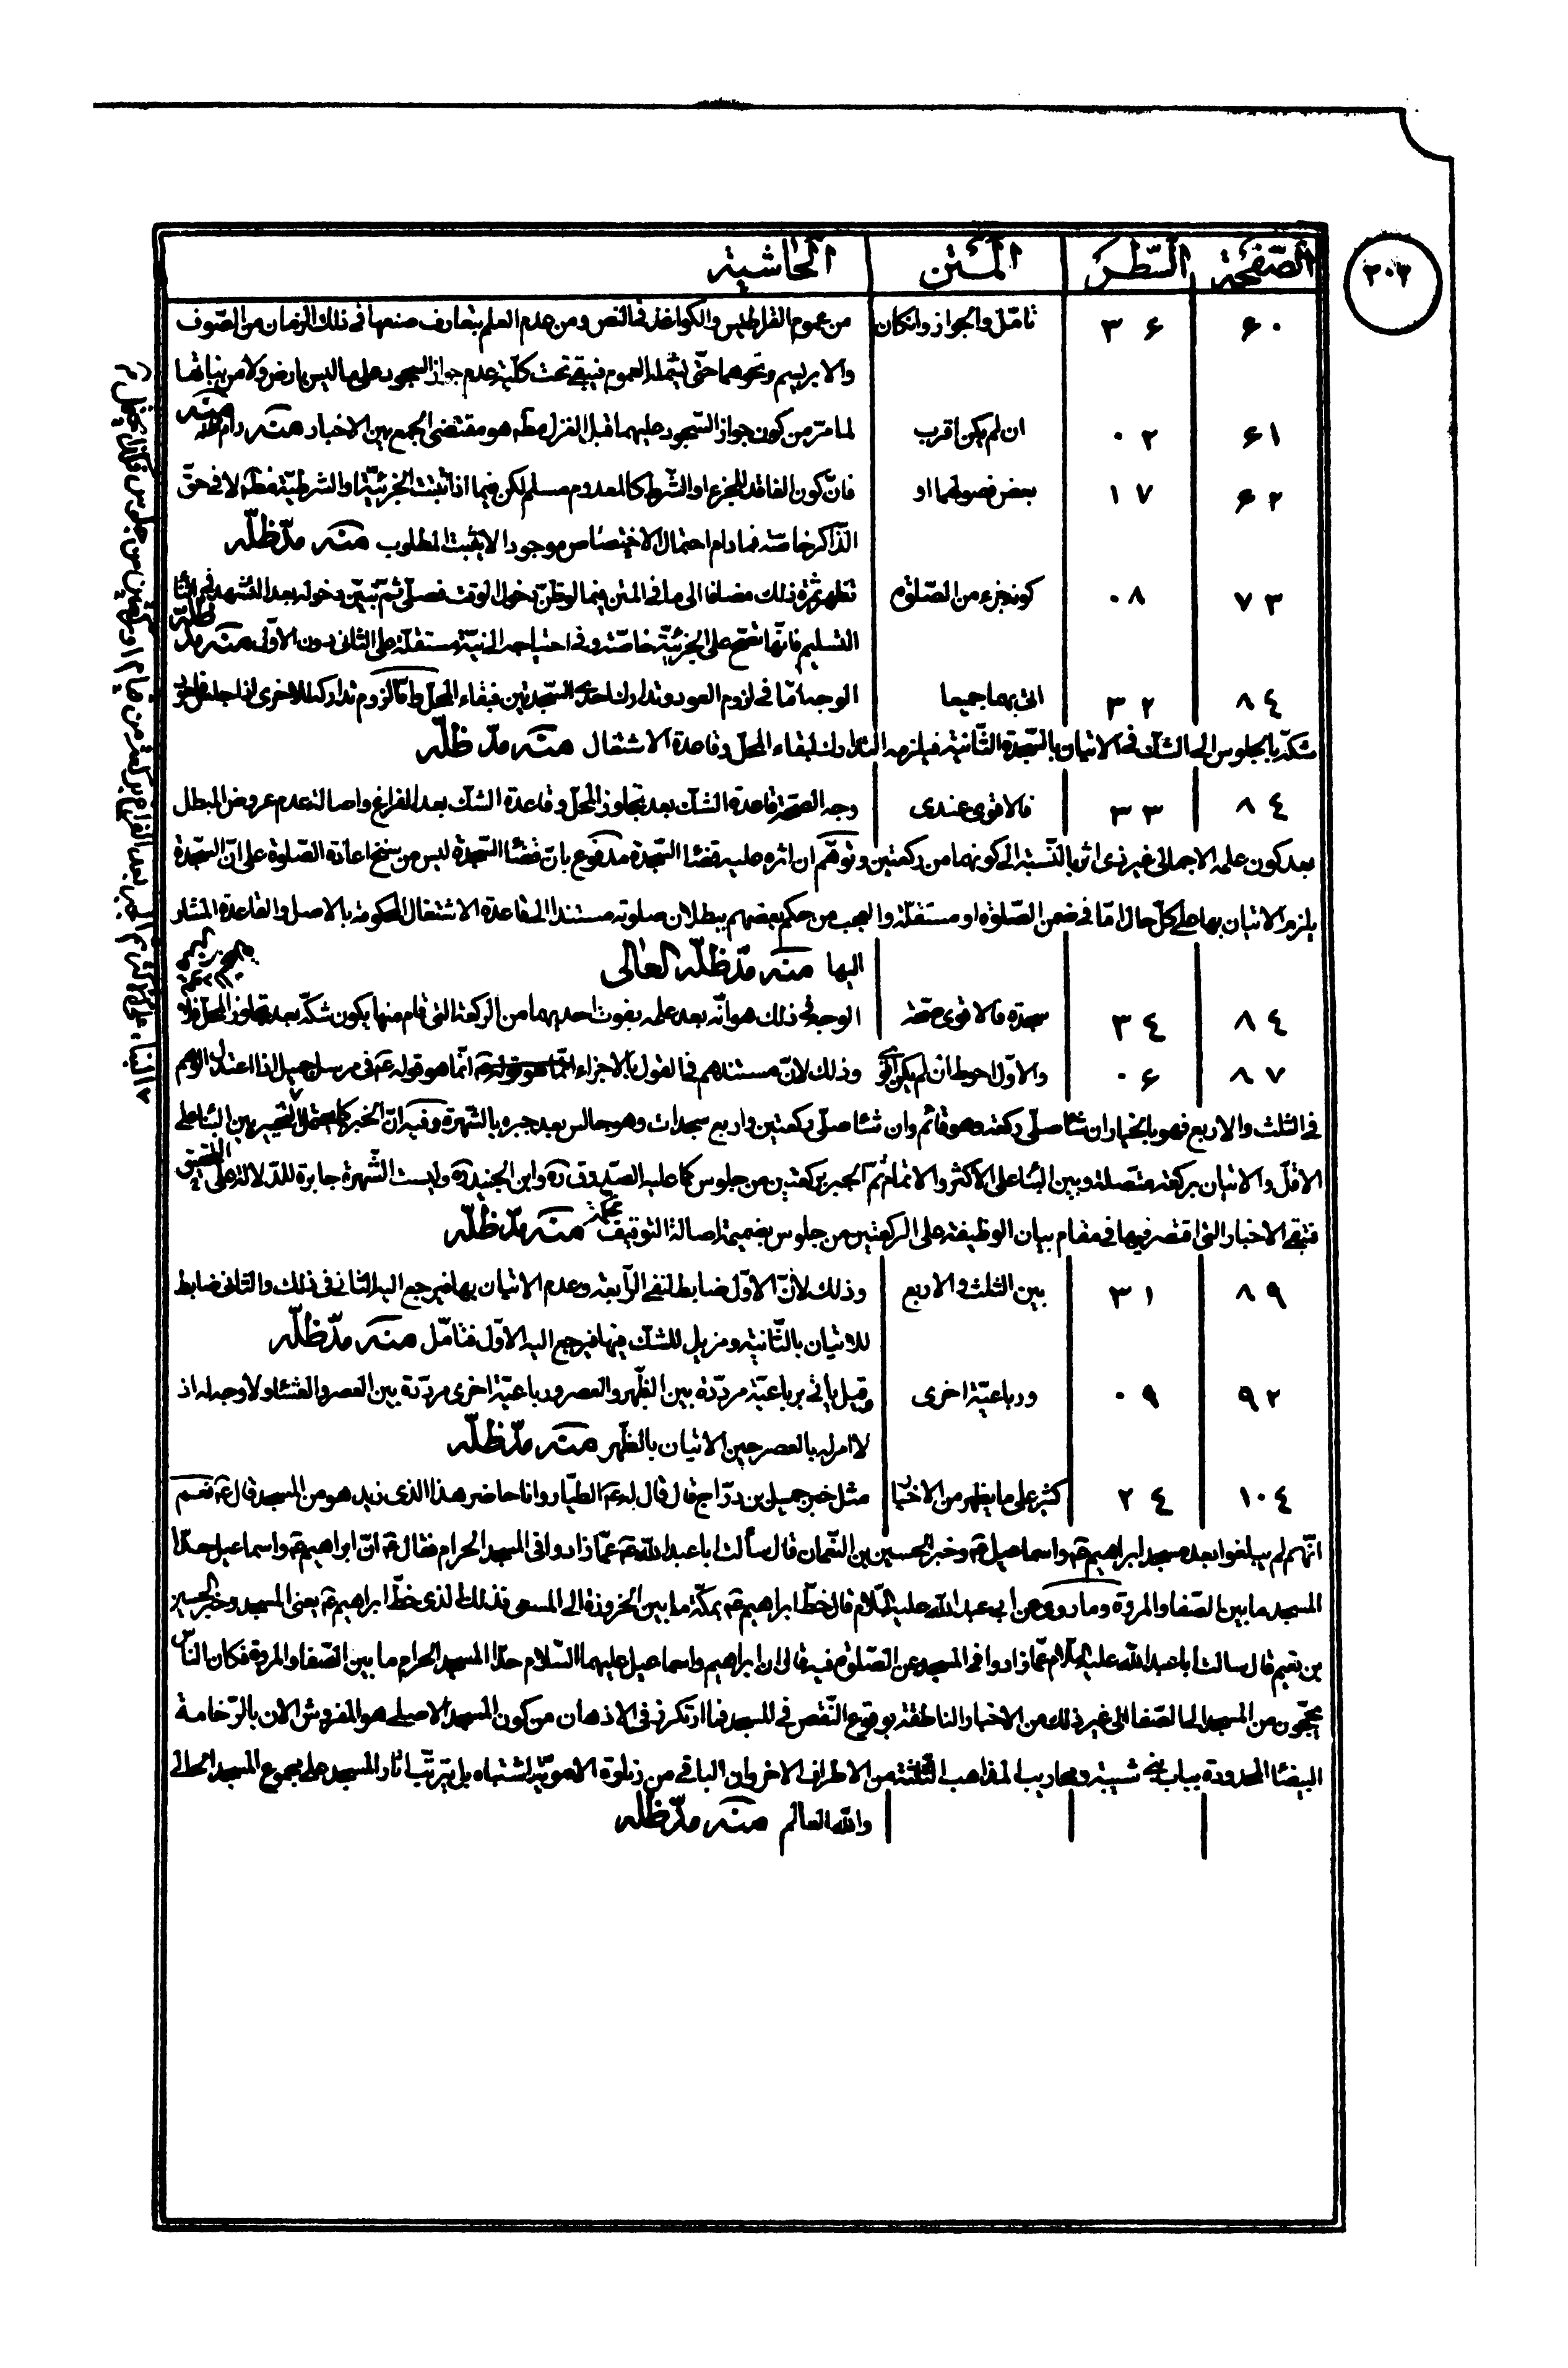 ٣٠٢
الصّفحة السّطر المتن الحاشية
٦٠ ٣٦ تامّل والجواز وان كان من عموم القراطيس والكواغذ فى النص ومن عدم العلم بتعارف صنعها فى ذلك الزمان من الصّوف
والابريسم ونحوهما حتّى يشمله العموم فيبقى تحت كلّية عدم جواز السجود على ما ليس بارض ولا من نباتها منه
٦١ ٠٢ ان لم يكن اقرب لما مرّ من كون جواز السّجود عليهما قبل الغزل مط هو مقتضى الجمع بين الاخبار منه دام ظله
٦٢ ١٧ بعض فصولهما او فانّ كون الفاقد للجزء او الشّرط كالمعدوم مسلم لكن فيما اذا ثبتت الجزئيّة او الشرطيّة مط لا فى حقّ
الذّاكر خاصّة فما دام احتمال الاختصاص موجودا لا يثبت المطلوب منه مدّ ظلّه
٧٣ ٠٨ كونه جزء من الصّلوة تظهر ثمرة ذلك مضافا الى ما فى المتن فيما لو ظنّ دخول الوقت فصلّى ثمّ تبيّن دخوله بعد التشهد فى اثناء
التسليم فانّها تصحّ على الجزئيّة خاصّة وفى احتياجه الى نيّة مستقلّة على الثانى دون الاوّل منه مدّ ظلّه
٨٤ ٣٢ اتى بهما جميعا الوجه امّا فى لزوم العود وتدارك احدى السّجدتين فبقاء المحلّ وامّا لزوم تداركه للاخرى
شكّه بالجلوس الى الشكّ فى الاتيان بالسّجدة الثّانية فيلزمه التدارك لبقاء المحلّ وقاعدة الاشتغال منه مدّ ظلّه
٨٤ ٣٣ فالاقوى عندى وجه الصّحة قاعدة الشك بعد تجاوز المحلّ وقاعدة الشك بعد الفراغ واصالة عدم عروض المبطل
بعد كون علمه الاجمالى غير ذى اثر بالنّسبة الى كونهما من ركعتين وتوهّم ان اثره عليه قضاء السّجدة مدفوع بانّ قضاء السّجدة ليس من سنخ اعادة الصّلوة على انّ السّجدة
يلزم الاتيان بها على كلّ حال امّا فى ضمن الصّلوة او مستقلّة والعجب من حكم بعضهم ببطلان صلوته مستندا الى قاعدة الاشتغال المحكومة بالاصل والقاعدة المشار
اليها منه مدّ ظلّه العالى
٨٤ ٣٤ سجدة فالاقوى صحّة الوجه فى ذلك هو انّه بعد علمه بفوت احديهما من الركعة التى قام منها يكون شكّه بعد تجاوز المحلّ
٨٧ ٠٦ والاوّل احوط ان لم يكن اقوى وذلك لانّ مستندهم فى القول بالاجزاء انّما هو قوله ع فى مرسل جميل اذا اعتدل الوهم
فى الثلث والاربع فهو بالخيار ان شاء صلّى ركعة وهو قائم وان شاء صلّى ركعتين واربع سجدات وهو جالس بعد جبره بالشّهرة وفيه انّ الخبر كما يحتمل التخيير بين البناء على
الاقلّ والاتيان بركعة متّصلة وبين البناء على الاكثر والاتمام ثمّ الجبر بركعتين من جلوس كما عليه الصّدوق ره وابن الجنيد ره وليست الشّهرة جابرة للدّلالة على التحقيق
فتبقى الاخبار التى اقتصر فيها فى مقام بيان الوظيفة على الركعتين من جلوس بضميمة اصالة التوقيف محكمة منه مدّ ظلّه
٨٩ ٣١ بين الثلث والاربع وذلك لانّ الاوّل ضابط لنفى الرّابعة وعدم الاتيان بها فيرجع اليه الثانى فى ذلك والثانى ضابط
للاتيان بالثّانية ومزيل للشكّ فيها فيرجع اليه الاوّل فتامّل منه مدّ ظلّه
٩٢ ٠٩ ورباعيّة اخرى وقيل ياتى برباعيّة مردّدة بين الظّهر والعصر ورباعيّة اخرى مردّدة بين العصر والعشاء ولا وجه له اذ
لا امر له بالعصر حين الاتيان بالظّهر منه مدّ ظلّه
١٠٤ ٢٤ كثير على ما يظهر من الاخبار مثل خبر جميل بن درّاج قال قال له ع الطيّار وانا حاضر هذا الذى زيد هو من المسجد قال ع نعم
انّهم لم يبلغوا بعد مسجد ابراهيم ع واسماعيل ع وخبر الحسين بن النّعمان قال سألت ابا عبد اللّه ع عمّا زادوا فى المسجد الحرام فقال ع انّ ابراهيم ع واسماعيل حدّا
المسجد ما بين الصّفا والمروة وما روى عن ابى عبد اللّه عليه السّلام قال خطّ ابراهيم ع بمكّة ما بين الحزورة الى المسعى فذلك الذى خطّ ابراهيم ع يعنى المسجد وخبر الحسين
بن نعيم قال سالت ابا عبد اللّه عليه السّلام عمّا زادوا فى المسجد عن الصّلوة فيه قال ان ابراهيم واسماعيل عليهما السّلام حدّا المسجد الحرام ما بين الصّفا والمروة فكان النّاس
يحجّون من المسجد الى الصّفا الى غير ذلك من الاخبار الناطقة بوقوع النّقص فى المسجد فما ارتكز فى الاذهان من كون المسجد الاصلى هو المفروش الان بالرّخامة
البيضاء المحدودة بباب بنى شيبة ومحاريب المذاهب الثلثة من الاطراف الاخر وان الباقى من زيادة الامويّة اشتباه بل يترتّب اثار المسجد على مجموع المسجد الحالى
واللّه العالم منه مدّ ظلّه